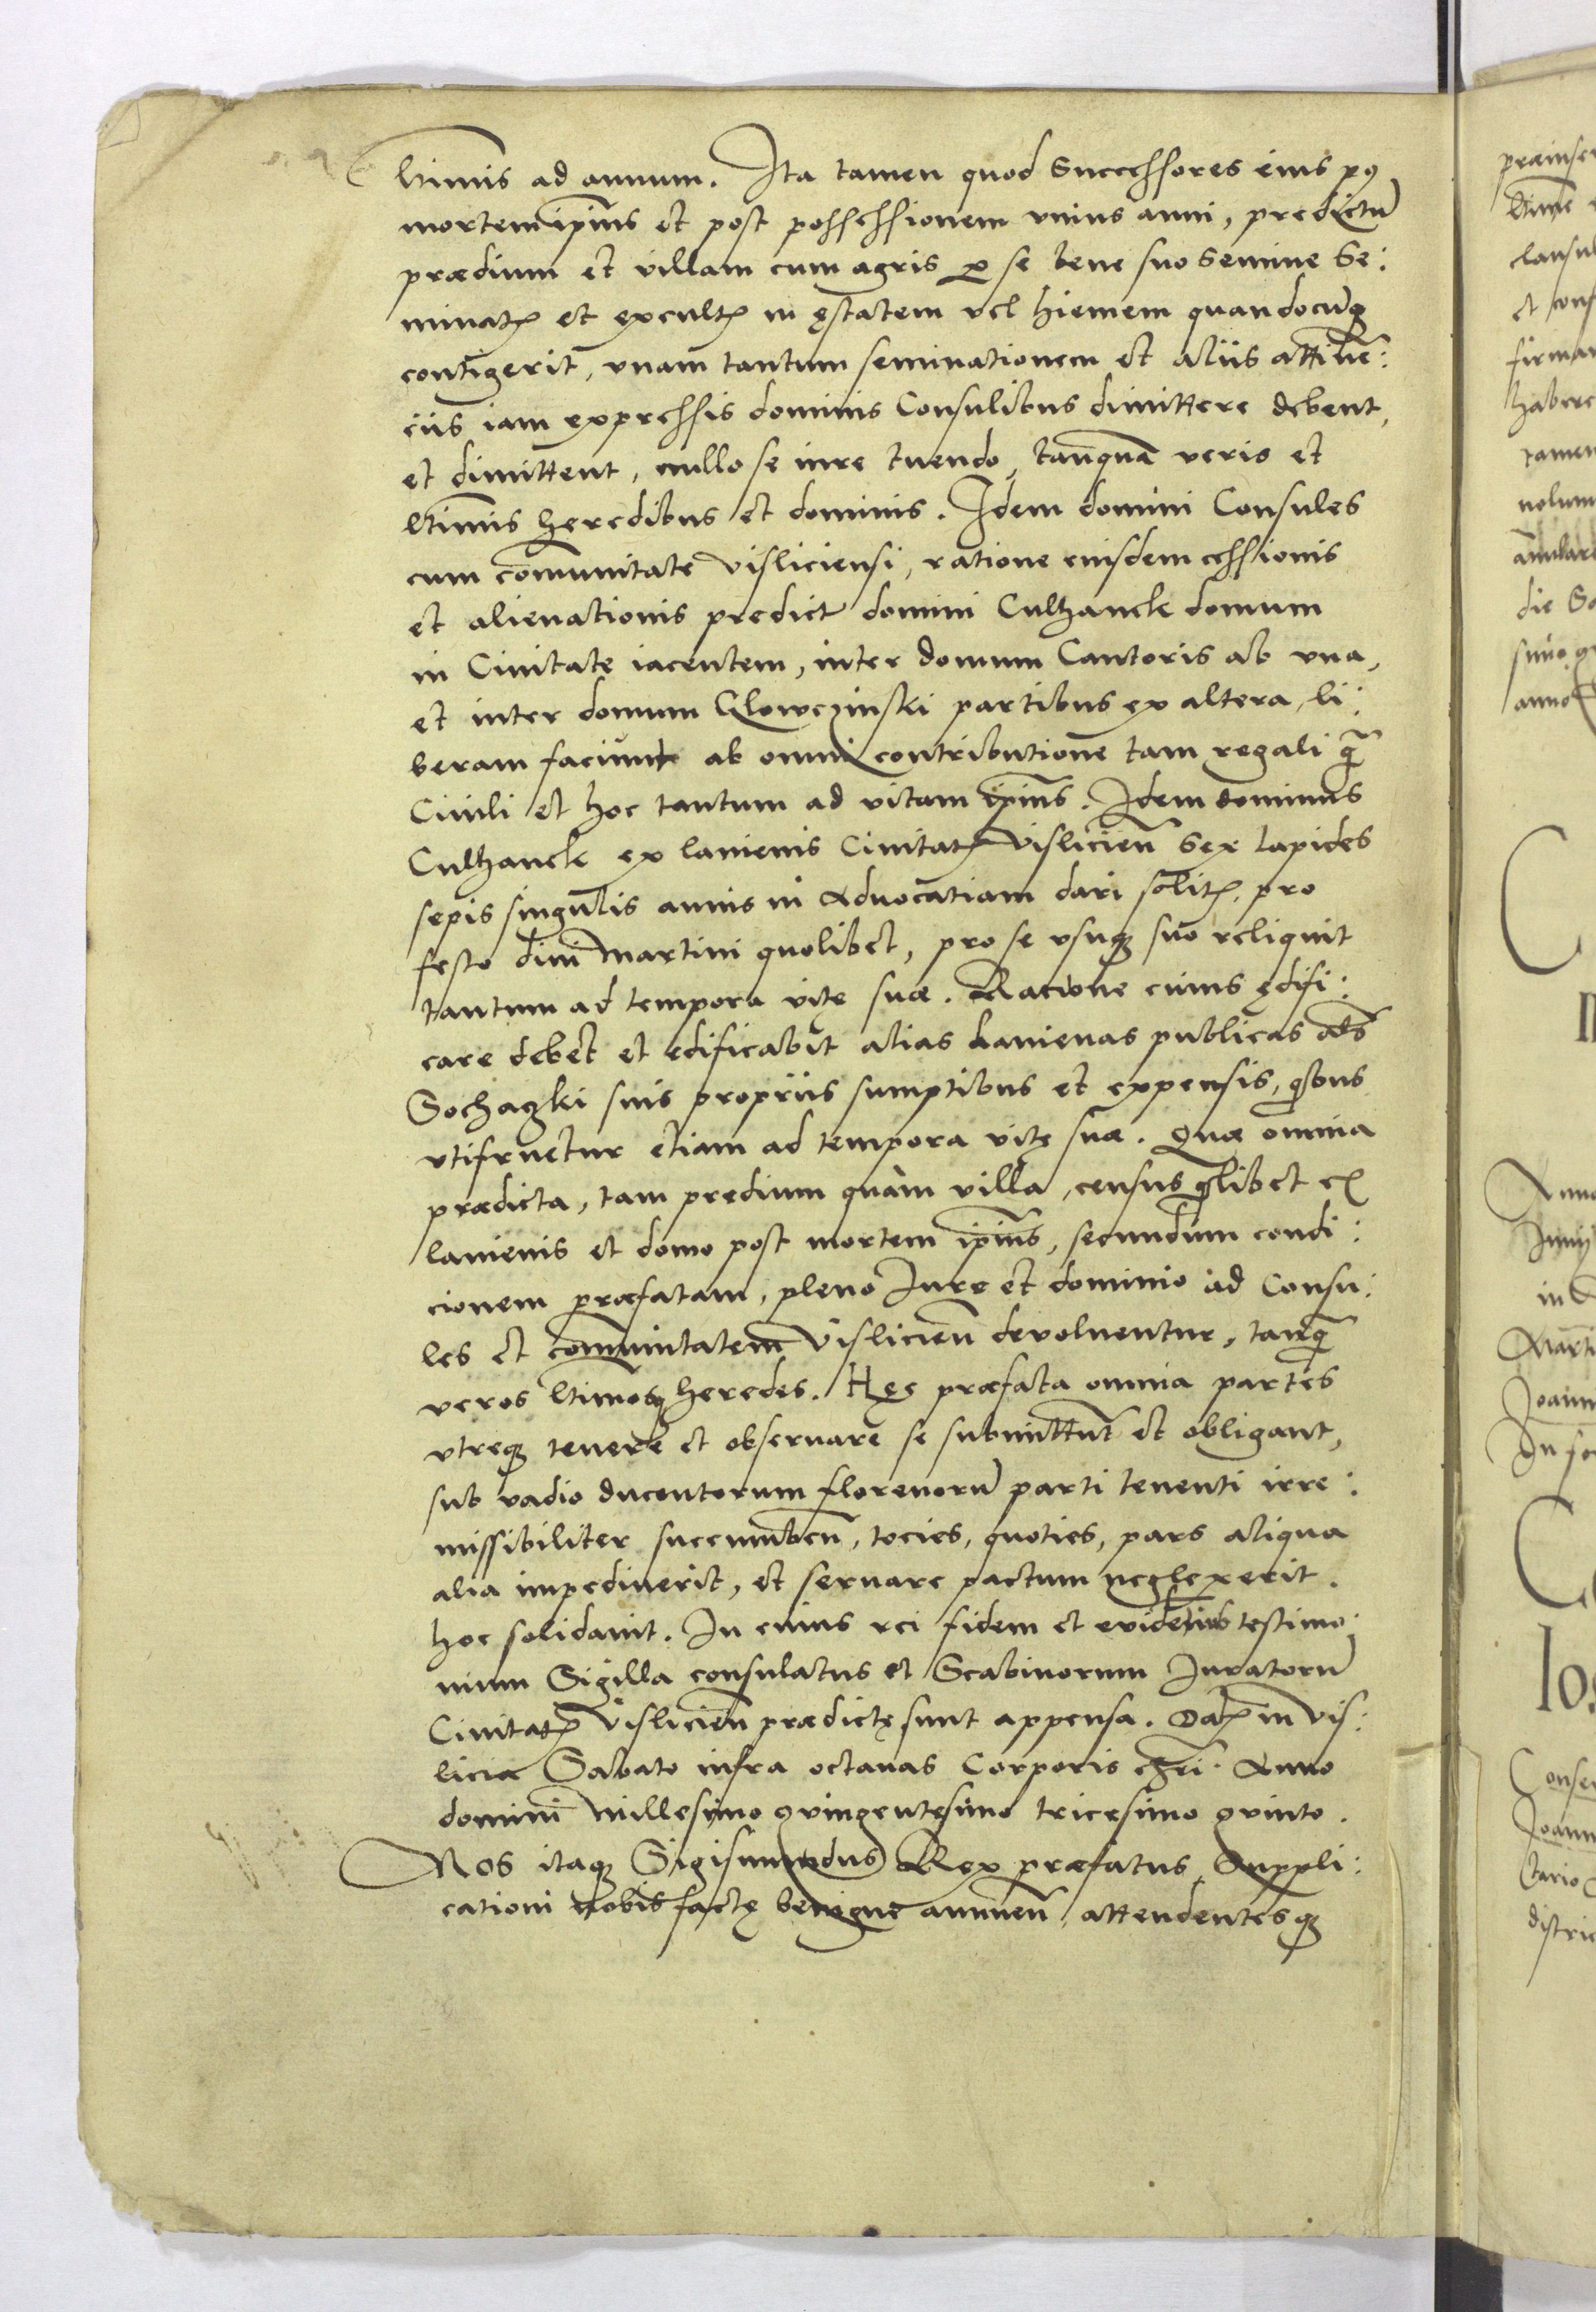 ltimis ad annum. Ita tamen quod Successores eius p9
mortem ipius et post possessionem vnius anni, predictū
prædium et villam cum agris p se bene suo Semine Se:
minatz et excultz in ęstatem vel hiemem quandocūq
contigerit, vnam tantum seminationem et aliis attinē:
ciis iam expressis dominis Consulibus dimittere debent,
et dimittent, nullo se iure tuendo, tanquā veris et
ltimis heredibus et dominis. Idem domini Consules
cum cōmunitate Visliciensi, ratione cuisdem cessionis
et alienationis predict domini Culhanek domum
in Ciuitate iacentem, inter domum Cantoris ab vna,
et inter domum Glowczinski partibus ex altera, li:
beram faciunt ab omni contributione tam regali q̄
Ciuili et hoc tantum ad vitam ipius. Idem dominus
Culhanek ex lanienis Ciuitatz Vislicien̄ Sex lapides
sepis singulis annis in Aduocatiam dari solitz, pro
festo diui Martini quolibet, pro se vsuq suo reliquit
tantum ad tempora vitę suæ. Racione cuius ędifi:
care debet et edificabit alias Lanienas publicas als
Sochaczki suis propriis sumptibus et expensis, qbus
vtifruetur etiam ad tempora vitę suæ. Quæ omnia
prædicta, tam predium quàm villa, census qlibet ex
lanienis et domo post mortem ipius, secundum condi:
cionem præfatam, pleno Iure et dominio ad Consu:
les et communitatem Vislicien̄ devoluentur, tanq̄
veros ltimosq heredes. Hęc præfata omnia partes
vtreq tenere et obseruare se submittunt et obligant,
sub vadio ducentorum florenorū parti tenenti irre:
missibiliter succumben̄, tocies, quoties, pars aliqua
alia impediuerit, et seruare pactum neglexerit.
hoc solidauit. In cuius rei fidem et evidens testimo:
nium Sigilla consulatus et Scabinorum Iuratorū
Ciuitatz Vislicien̄ prædictę sunt appensa. Datz in Vis:
licia Sabato infra octauas Corporis chri. Anno
domini Millesimo qvingentesimo tricesimo qvinto.
Nos itaq Sigismundus Rex præfatus Suppli:
cationi nobis factę benigne annuen̄, attendentesq